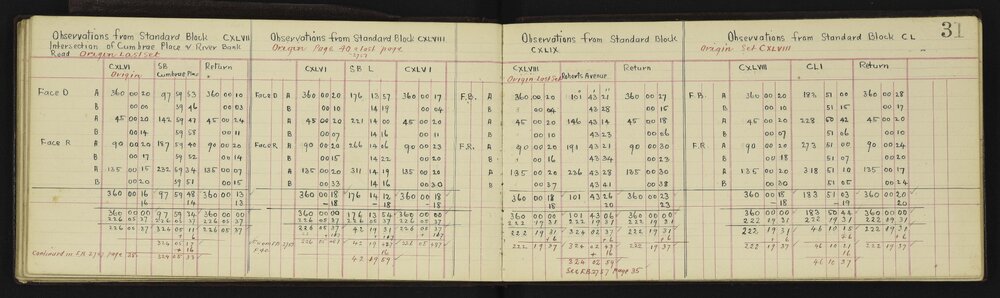 31
Observations from Standard Block CXLVII
Intersection of Cumbrae Place & River Bank
Road Origin Last Set
CXLVI SB Return
Origin Cumbrae Place
Face D A 360 00 20 97 59 53 360 00 10
B 00 00 59 46 00 03
A 45 00 20 142 59 47 45 00 24
B 00 14 59 58 00 11
Face R A 90 00 20 187 59 40 90 00 20
B 00 17 59 52 00 14
A 135 00 15 232 59 34 135 00 07
B 00 20 59 51 00 15
360 00 16 97 59 48 360 00 13
16 14 13
360 00 00 97 59 34 360 00 00
226 05 37 226 05 37 226 05 37
226 05 37 324 05 11 226 05 37
+ 6
324 05 17
+ 16
Continued in F.B 2757 page 35 324 05 33
Observations from Standard Block CXLVIII
Origin Page 40 & last page
2757
CXLVI SB L CXLVI
Face D A 360 00 20 176 13 57 360 00 17
B 00 10 14 19 00 04
A 45 00 20 221 14 00 45 00 20
B 00 07 14 16 00 11
Face R A 90 00 20 266 14 06 90 00 23
B 00 15 14 22 00 20
A 135 00 20 311 14 19 135 00 20
B 00 33 14 16 00 30
360 00 18 176 14 12 360 00 18
-18 -18 -18
360 00 00 176 13 54 360 00 00
226 05 37 226 05 37 226 05 37
226 05 37 42 19 31 226 05 37
42 19 59
Observations from Standard Block
CXLIX
CXLVIII
Origin Last Set Roberts Avenue Return
F.B. A 360 00 20 101 43 21 360 00 27
B 00 04 43 28 00 15
A 45 00 20 146 43 14 45 00 18
B 00 10 43 23 00 06
F.R. A 90 00 20 191 43 21 90 00 30
B 00 16 43 34 00 23
A 135 00 20 236 43 28 135 00 30
B 00 37 43 41 00 38
360 00 18 101 43 26 360 00 23
18 20 23
360 00 00 101 43 06 360 00 00
222 19 31 222 19 31 222 19 31
222 19 31 324 02 37 222 19 31
+ 6 + 6 + 6
222 19 37 324 02 43 222 19 37
+ 16
324 02 59
See F.B 2757 page 35
Observations from Standard Block CL
Origin Set CXLVIII
CXLVIII CLI Return
F.B. A 360 00 20 183 51 00 360 00 28
B 00 10 51 15 00 17
A 45 00 20 228 50 42 45 00 20
B 00 07 51 06 00 10
F.R A 90 00 20 273 51 00 90 00 24
B 00 18 51 07 00 20
A 135 00 20 318 51 10 135 00 27
B 00 30 51 05 00 24
360 00 18 183 51 03 360 00 20
-18 -19 20
360 00 00 183 50 44 360 00 00
222 19 31 222 19 31 222 19 31
222 19 31 46 10 15 222 19 31
+ 6 + 6 + 6
222 19 37 46 10 21 222 19 37
16
46 10 37